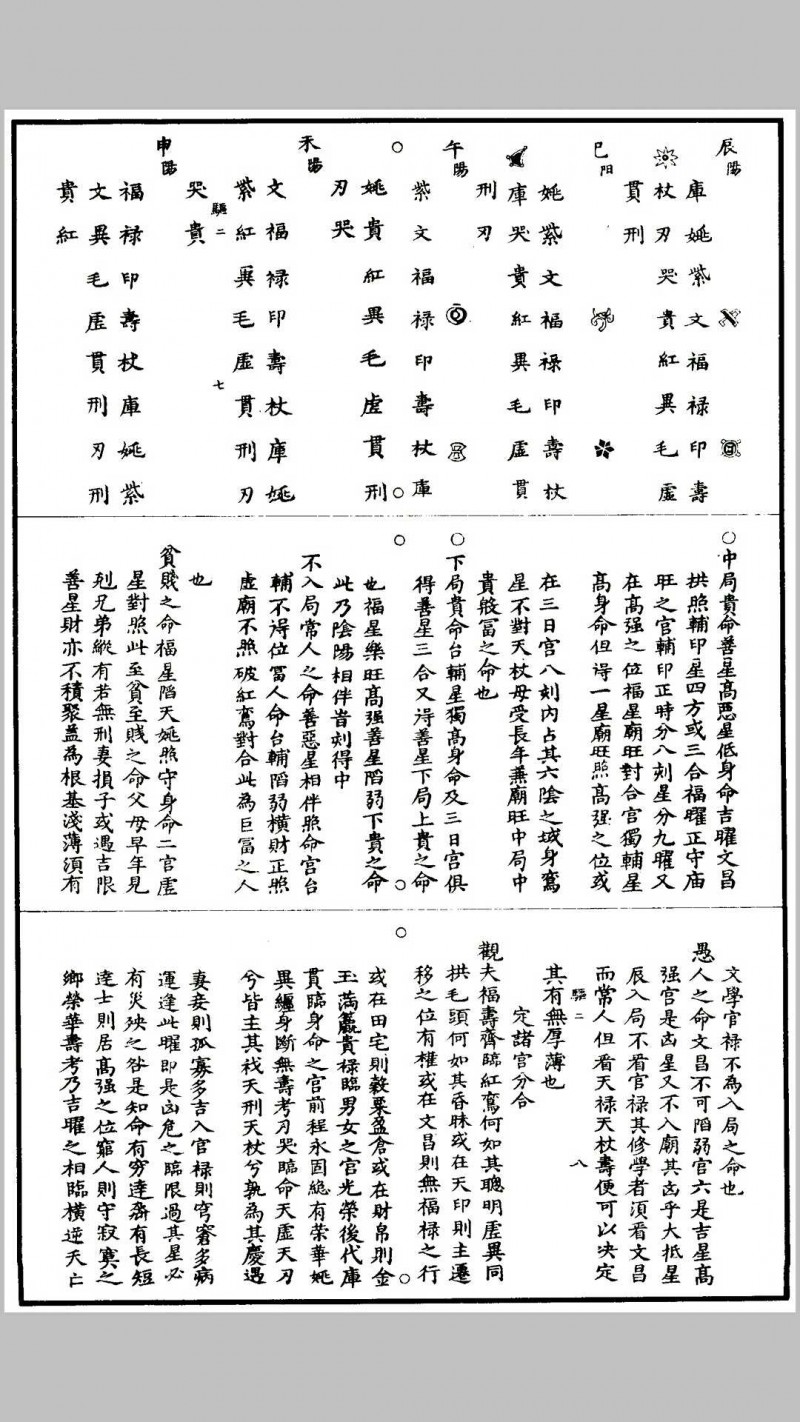 辰陽
庫姚紫文福禄印壽
杖刃哭貴紅異毛虛
貫刑
巳阳
姚紫文福禄印壽杖
庫哭貴紅異毛虛貫
刑刃
午陽
紫文福禄印壽杖庫
姚貴紅異毛虛貫刑
刃哭
未陽
文福禄印壽杖庫姚
紫紅異毛虛貫刑刃
驅二 七
哭貴
申陽
福禄印壽杖庫姚紫
文異毛虛貫刑刃刑
貴紅
○中局貴命善星高惡星低身命吉曜文昌
拱照輔印星四方或三合福曜正守庙
旺之宫輔印正時分八刻星分九曜又
在高强之位福星廟旺對合宫獨輔星
高身命但得一星廟旺照高强之位或
在三日宫八刻內占其六陰之域身鸞
星不對天杖毋受長年兼廟旺中局中
貴般冨之命也
○下局貴命台輔星獨高身命及三日宫俱
得善星三合又得善星下局上貴之命
也福星樂旺高强善星陷弱下貴之命
此乃陰陽相伴昔刻得中
不入局常人之命善惡星相伴照命宫台
輔不得位冨人命台輔陷弱横財正照
虛廟不照破紅鸞對合此為巨冨之人
也
貧賤之命福星陷天姚照守身命二官虛
星對照此至貧至賤之命父母早年見
剋兄弟縱有若無刑妻損子或遇吉限
善星財亦不積聚葢為根基淺薄須有
文學官禄不為入局之命也
愚人之命文昌不可陷弱宫六是吉星高
强宫是凶星又不入廟其凶乎大抵星
辰入局不看官禄其修學者須看文昌
而常人但看天禄天杖壽便可以决定
驅二 八
其有無厚薄也
定諸宫分合
觀夫福壽齊臨紅鸞何如其聰明虛異同
拱毛頭何如其昏昧或在天印則主遷
移之位有權或在文昌則無福禄之行
或在田宅則榖粟盈倉或在財帛則金
玉滿籯貴禄臨男女之官光榮後代庫
貫臨身命之官前程永固縂有荣華姚
異纏身断無壽考刃哭臨命天虛天刃
兮皆主其祅天刑天杖兮孰為其慶遇
妻妾則孤寡多吉入官禄則穹窘多病
運逢此曜即是凶危之臨限過其星必
有災殃之咎是知命有穷達斎有長短
達士則居高强之位窮人則守寂寞之
鄉榮華壽考乃吉曜之相臨横逆天亡